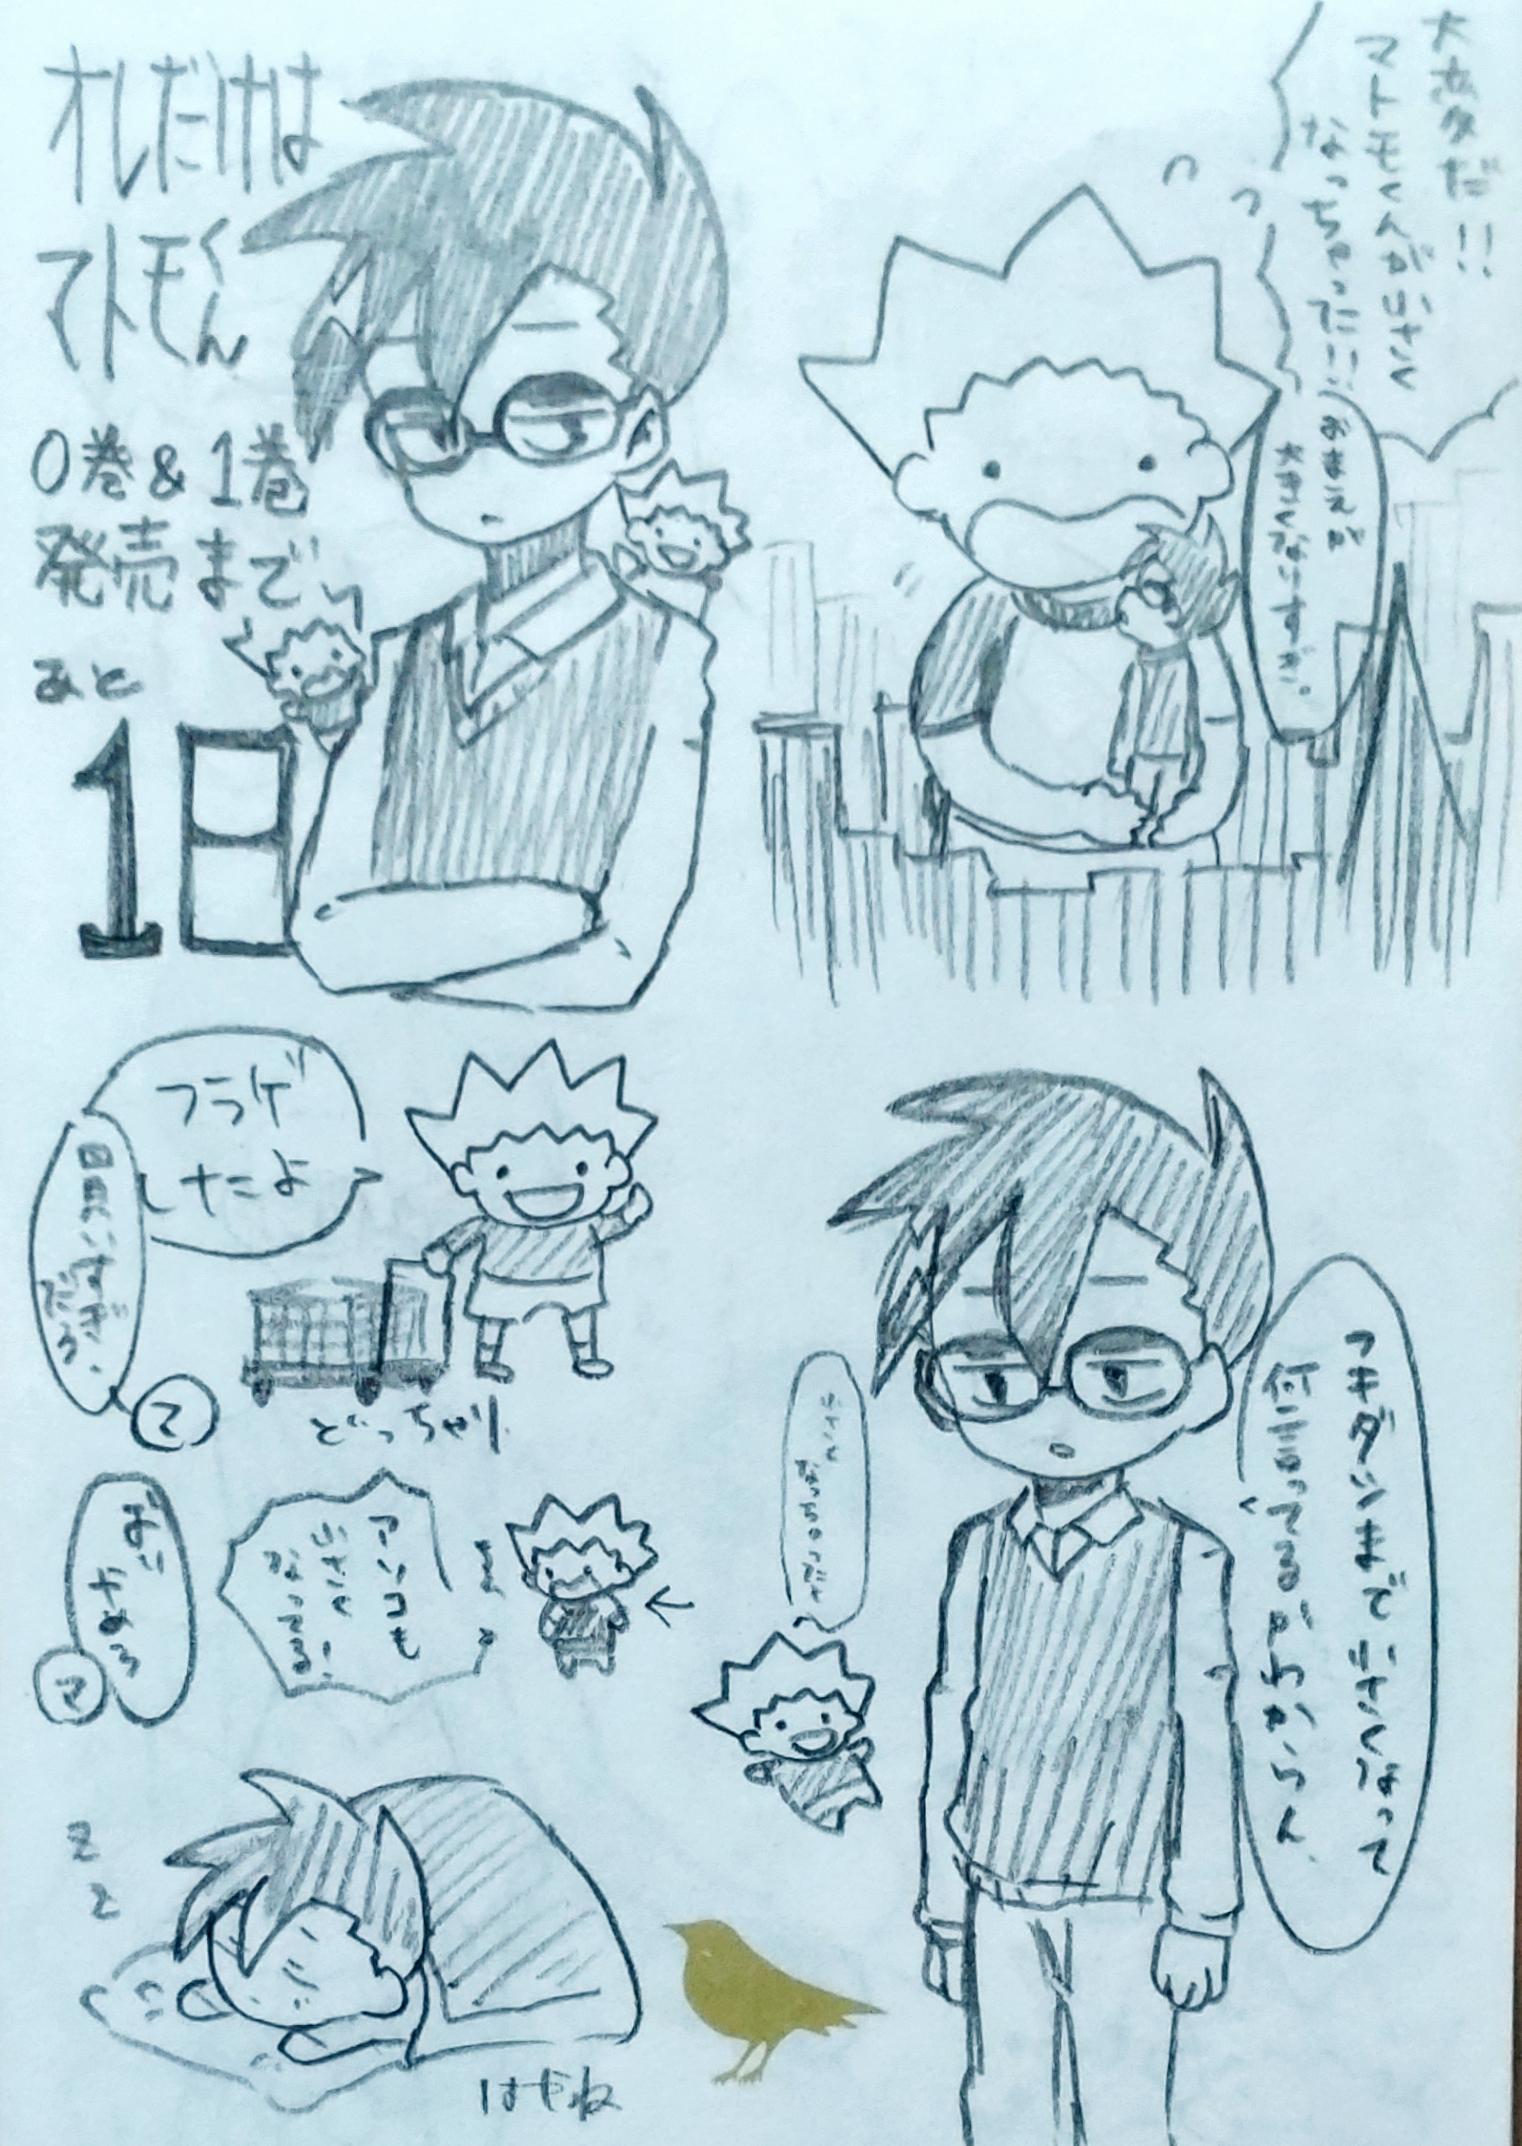 オレだけは
マトモくん
0巻&1巻
発売まで
あと
1日
大変だ!!
マトモくんが小さく
なっちゃった!!!
おまえが
大きくなりすぎだ。
フラゲ
したよ
目立ちすぎ
だろ
マ
どっちゃり
アソコも
小さく
なってる!
おい
やめろ
マ
フキダシまで小さくなって
何言ってるかわからん
z
z
はやね